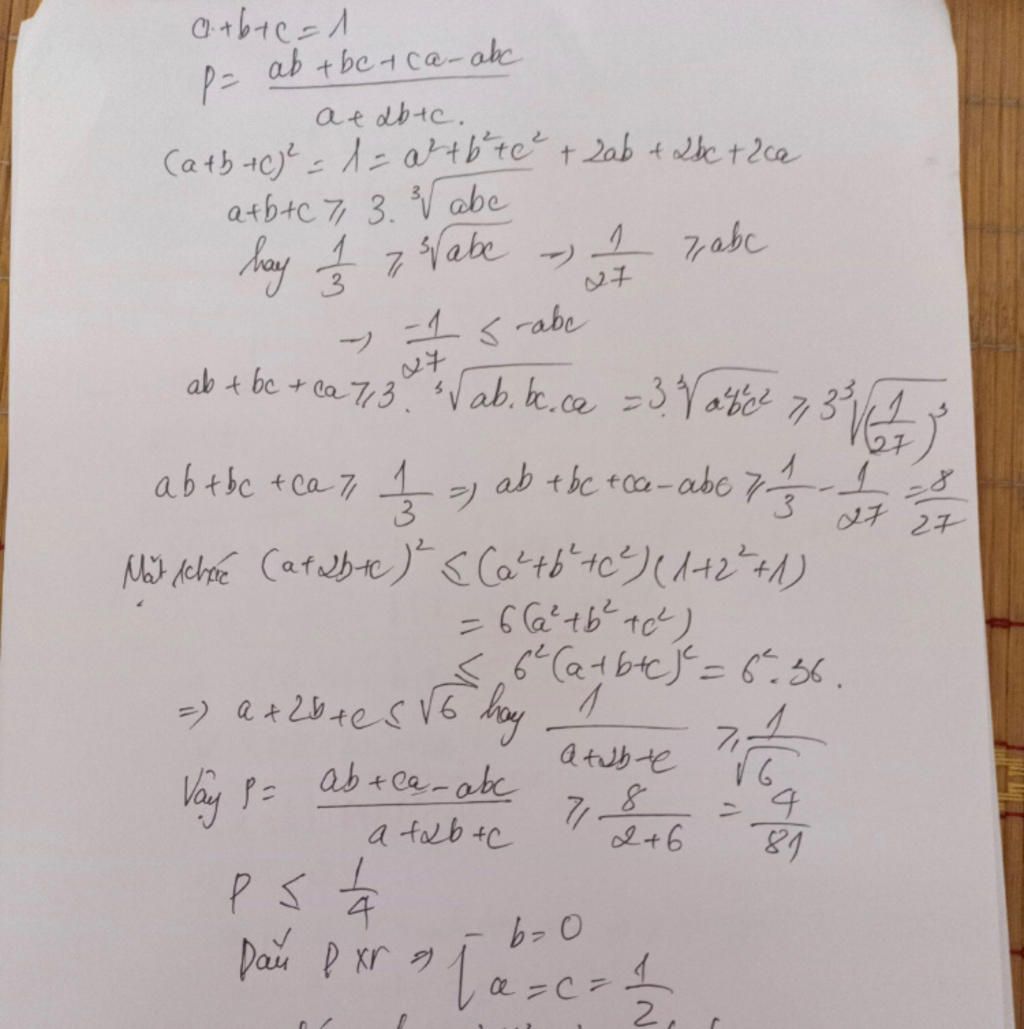 a+b+c=1
P= (ab+bc+ca-abc)/(a+2b+c).
(a+b+c)² = 1 = a²+b²+c² + 2ab + 2bc + 2ca
a+b+c ⩾ 3. ³√abc
hay 1/3 ⩾ ³√abc → 1/27 ⩾ abc
→ -1/27 ≤ -abc
ab + bc + ca ⩾ 3. ³√ab.bc.ca = 3. ³√a²b²c² ⩾ 3 ³√(1/27)³
ab+bc+ca ⩾ 1/3 ⇒ ab+bc+ca-abc ⩾ 1/3 - 1/27 = 8/27
Mặt khác (a+2b+c)² ≤ (a²+b²+c²)(1+2²+1)
= 6(a²+b²+c²)
≤ 6²(a+b+c)² = 6².36.
⇒ a+2b+c ≤ √6 hay 1/(a+2b+c) ⩾ 1/√6
Vậy P= (ab+ca-abc)/(a+2b+c) ⩾ 8/(2+6) = 4/81
P ≤ 1/4
Dấu P xr ⇒ { b=0
a=c=1/2